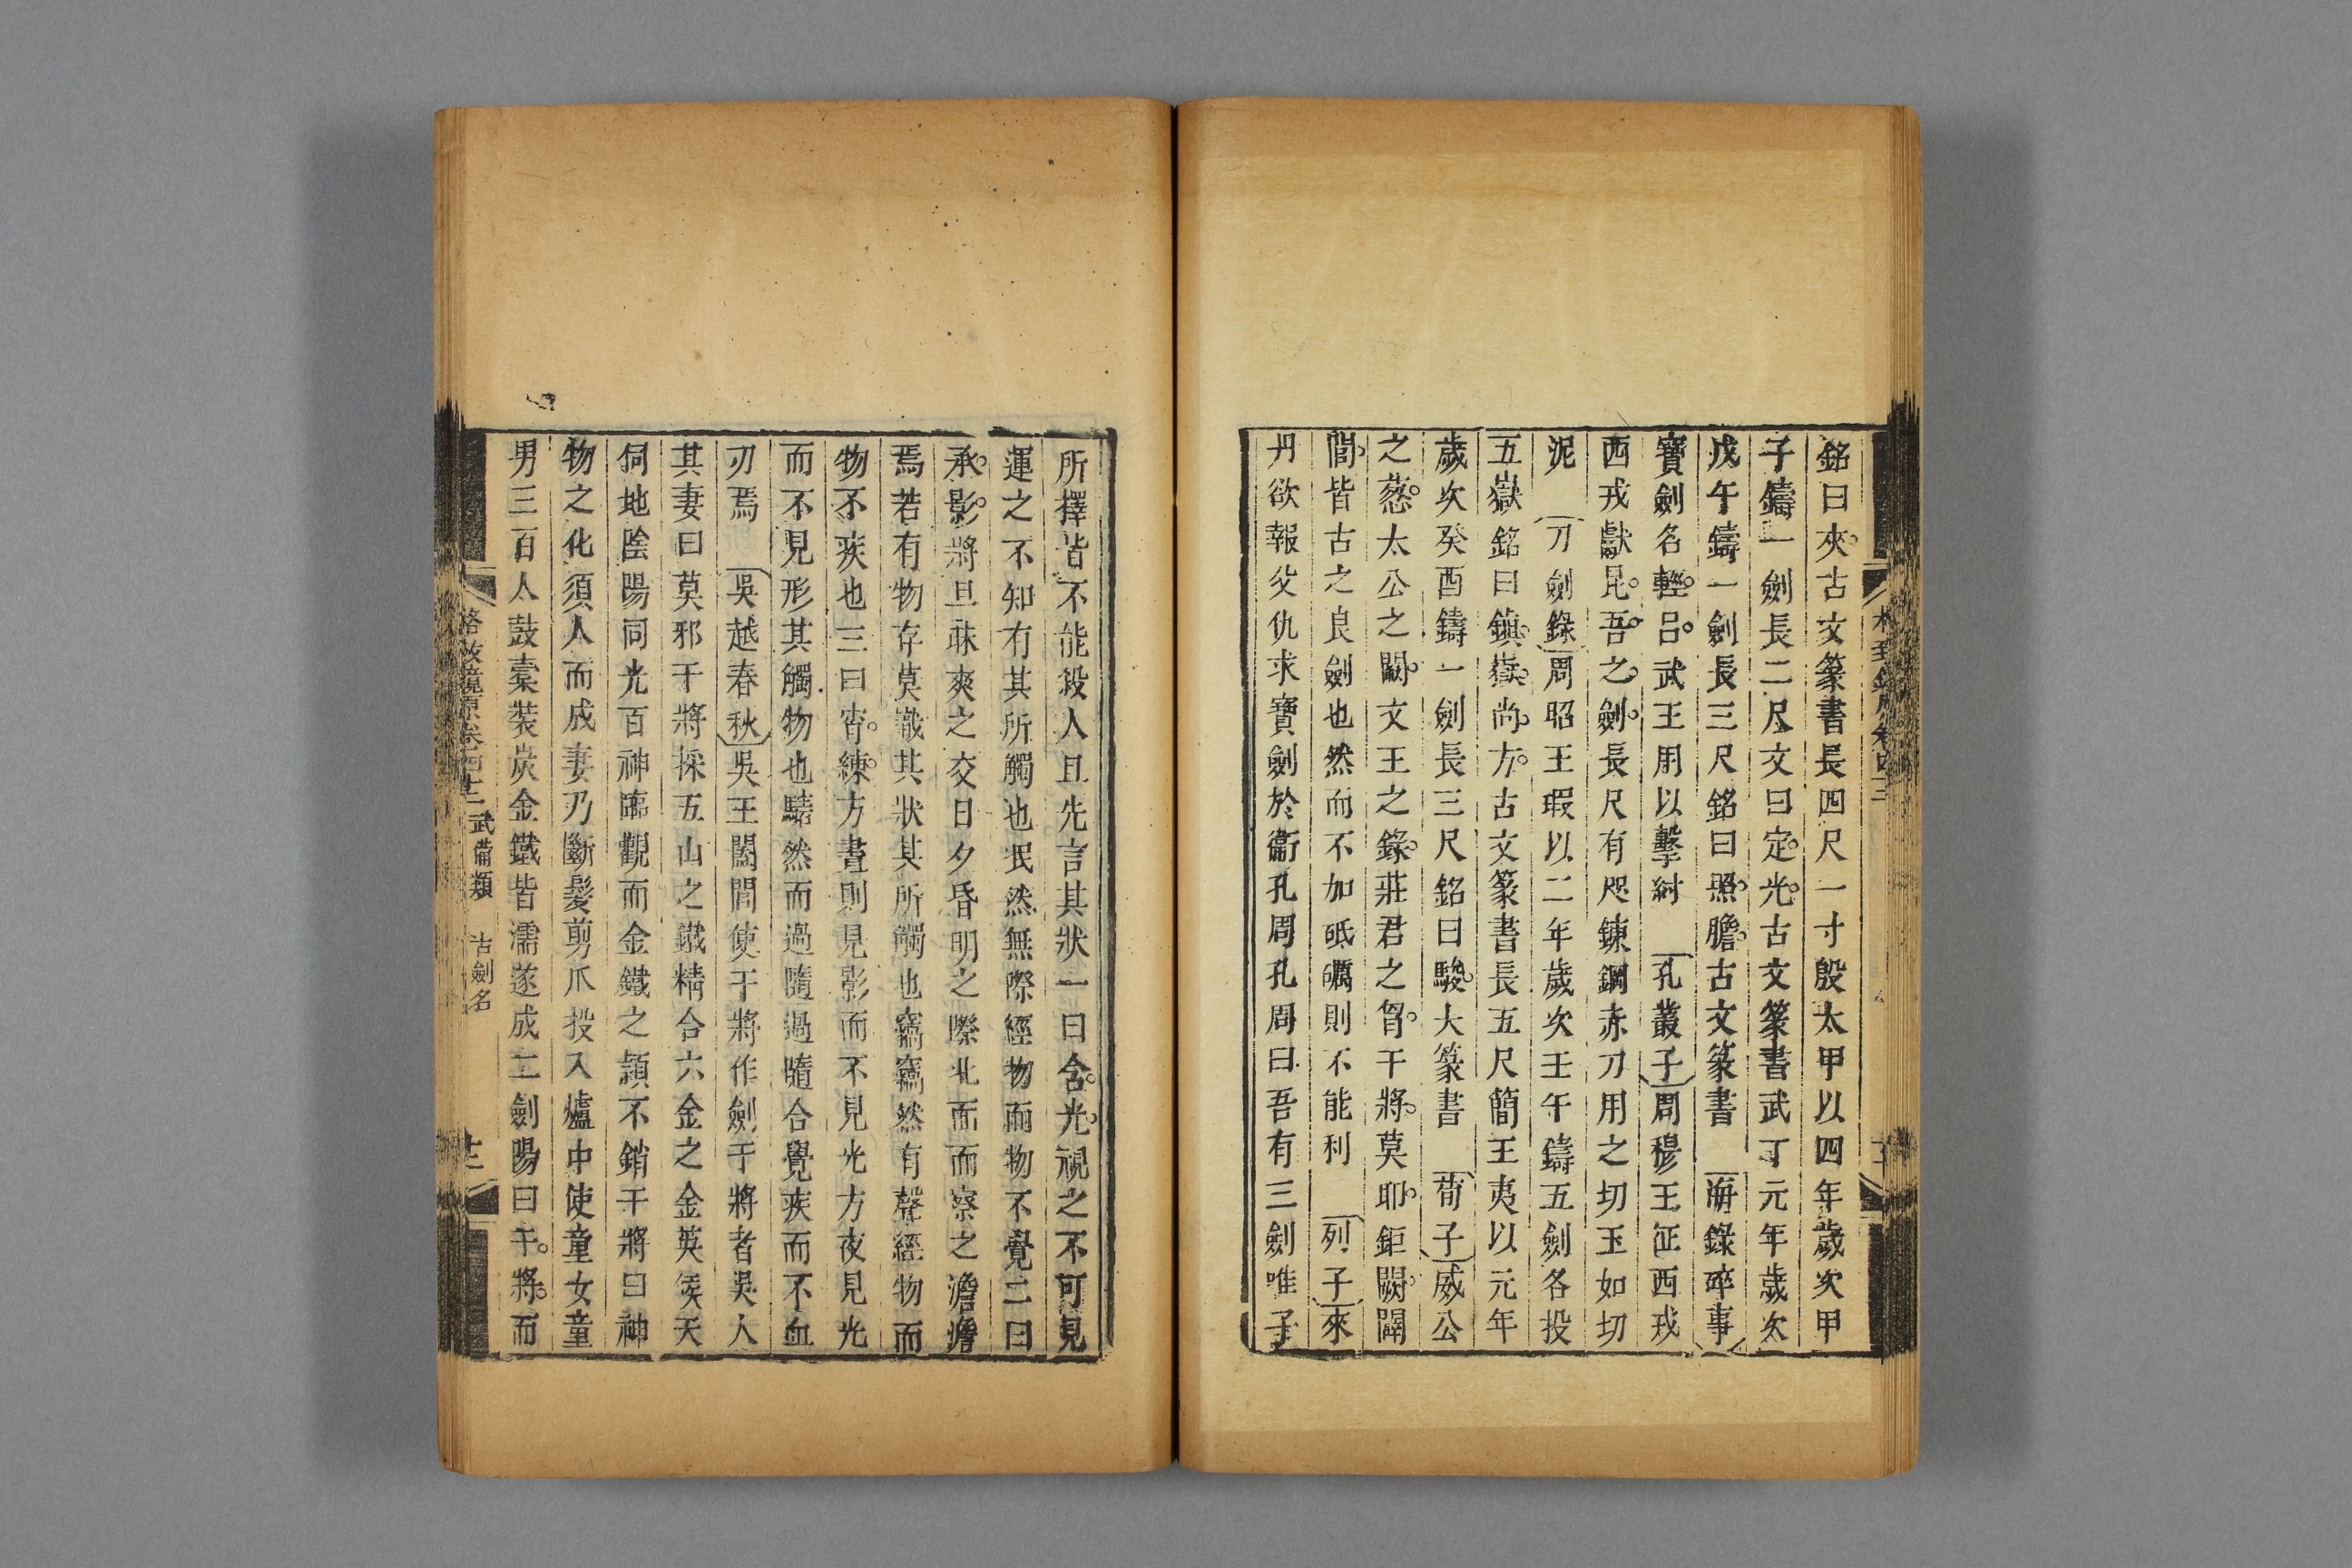 銘曰夾古文篆書長四尺一寸殷太甲以四年歲次甲
子鑄一劍長二尺文曰定光古文篆書武丁元年歲次
戊午鑄一劍長三尺銘曰照膽古文篆書 海錄碎事
寶劍名輕呂武王用以擊紂 孔叢子周穆王征西戎
西戎獻昆吾之劍長尺有咫鍊鋼赤刀用之切玉如切
泥 刀劍錄周昭王瑕以二年歲次壬午鑄五劍各投
五嶽銘曰鎮嶽尚方古文篆書長五尺簡王夷以元年
歲次癸酉鑄一劍長三尺銘曰駿大篆書 荀子威公
之蔥太公之闕文王之錄莊君之曶干將莫耶鉅闕闢
閭皆古之良劍也然而不加砥礪則不能利 列子來
丹欲報父仇求寶劍於衞孔周孔周曰吾有三劍唯子
所擇皆不能殺人且先言其狀一曰含光視之不可見
運之不知有其所觸也泯然無際經物而物不覺二曰
承影將旦昧爽之交日夕昏明之際北面而察之澹澹
焉若有物存莫識其狀其所觸也竊竊然有聲經物而
物不疾也三曰宵練方晝則見影而不見光方夜見光
而不見形其觸物也騞然而過隨過隨合覺疾而不血
刃焉 吳越春秋吳王闔閭使干將作劍干將者吳人
其妻曰莫邪干將採五山之鐵精合六金之金英矦天
伺地陰陽同光百神臨觀而金鐵之頴不銷干將曰神
物之化須人而成妻乃斷髮剪爪投入爐中使童女童
男三百人鼓橐裝炭金鐵皆濡遂成二劍陽曰干將而
格致鏡原卷四十二 武備類 古劍名